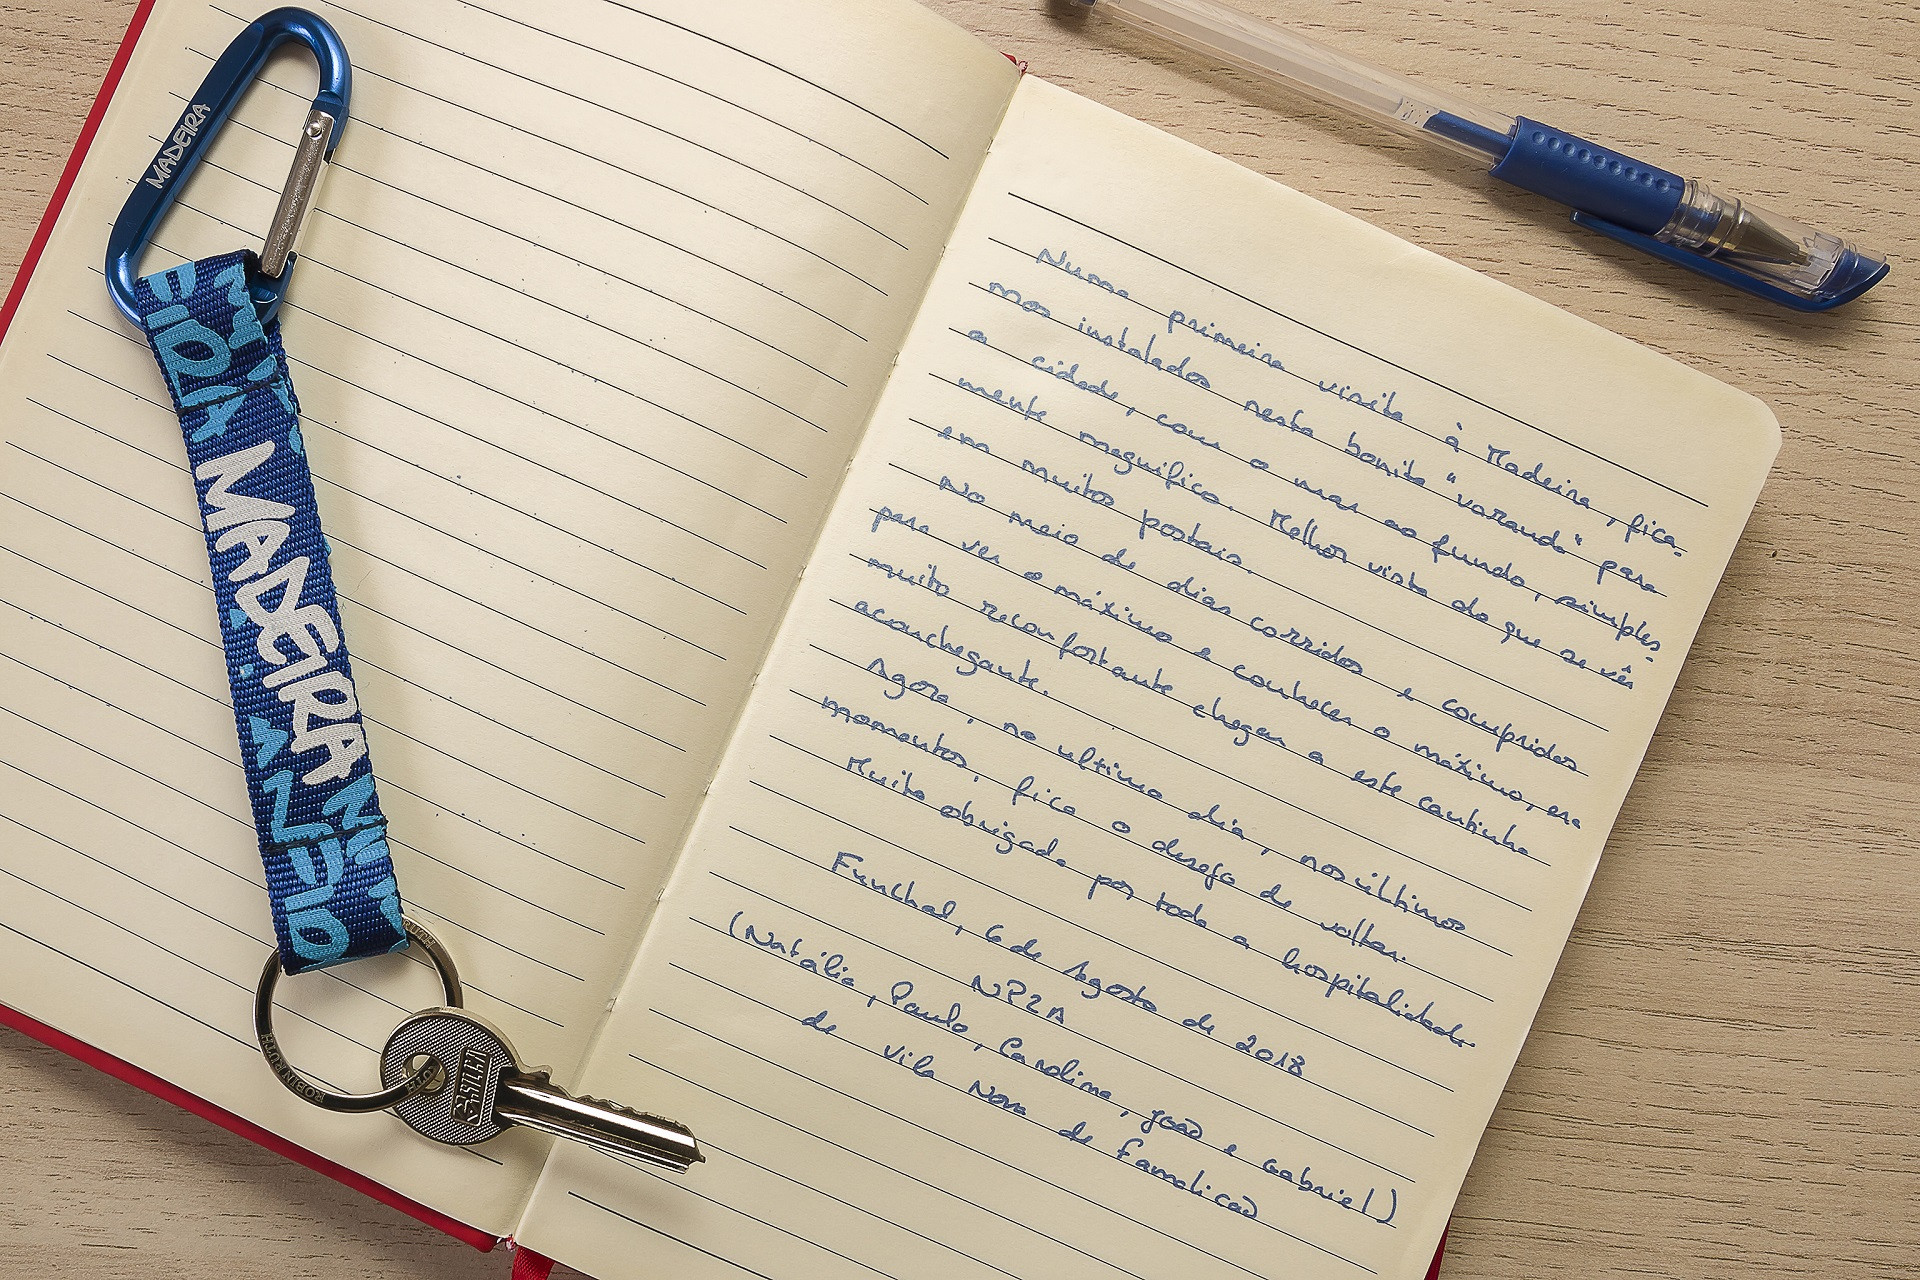 MADEIRA
EIRA
MADEIRA
ROBIN RUTH
Numa primeira visita à Madeira, fica-
mos instalados nesta bonita "varanda" para
a cidade, com o mar ao fundo, simples-
mente magnifico. Melhor vista do que se vês
em muitos postais.
No meio de dias corridos e compridos
para ver o máximo e conhecer o máximo, era
muito reconfortante chegar a este cantinho
aconchegante.
Agora, no ultimo dia, nos últimos
momentos, fica o desejo de voltar.
Muito obrigada por toda a hospitalidade.
Funchal, 6 de Agosto de 2018
(Natália, Paulo, Carolina, João e Gabriel)
de Vila Nova de Famalicão